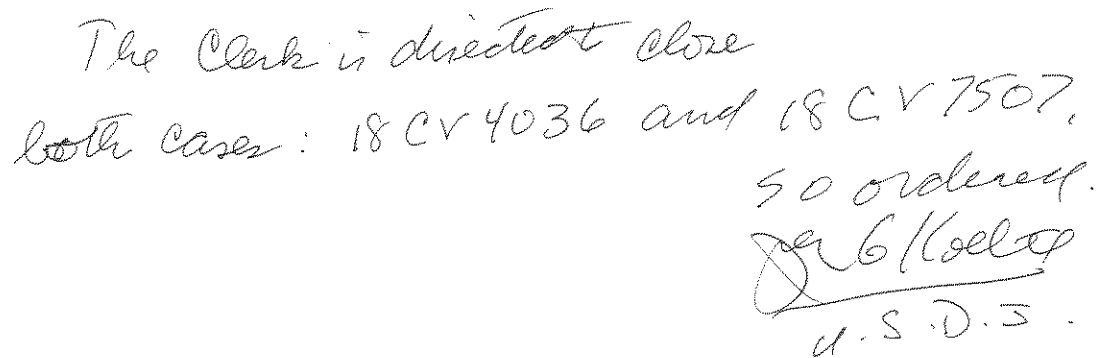 The Clerk is directed to close
both cases: 18 CV 4036 and 18 CV 7507.
so ordered.
G Koeltl
U.S.D.J.